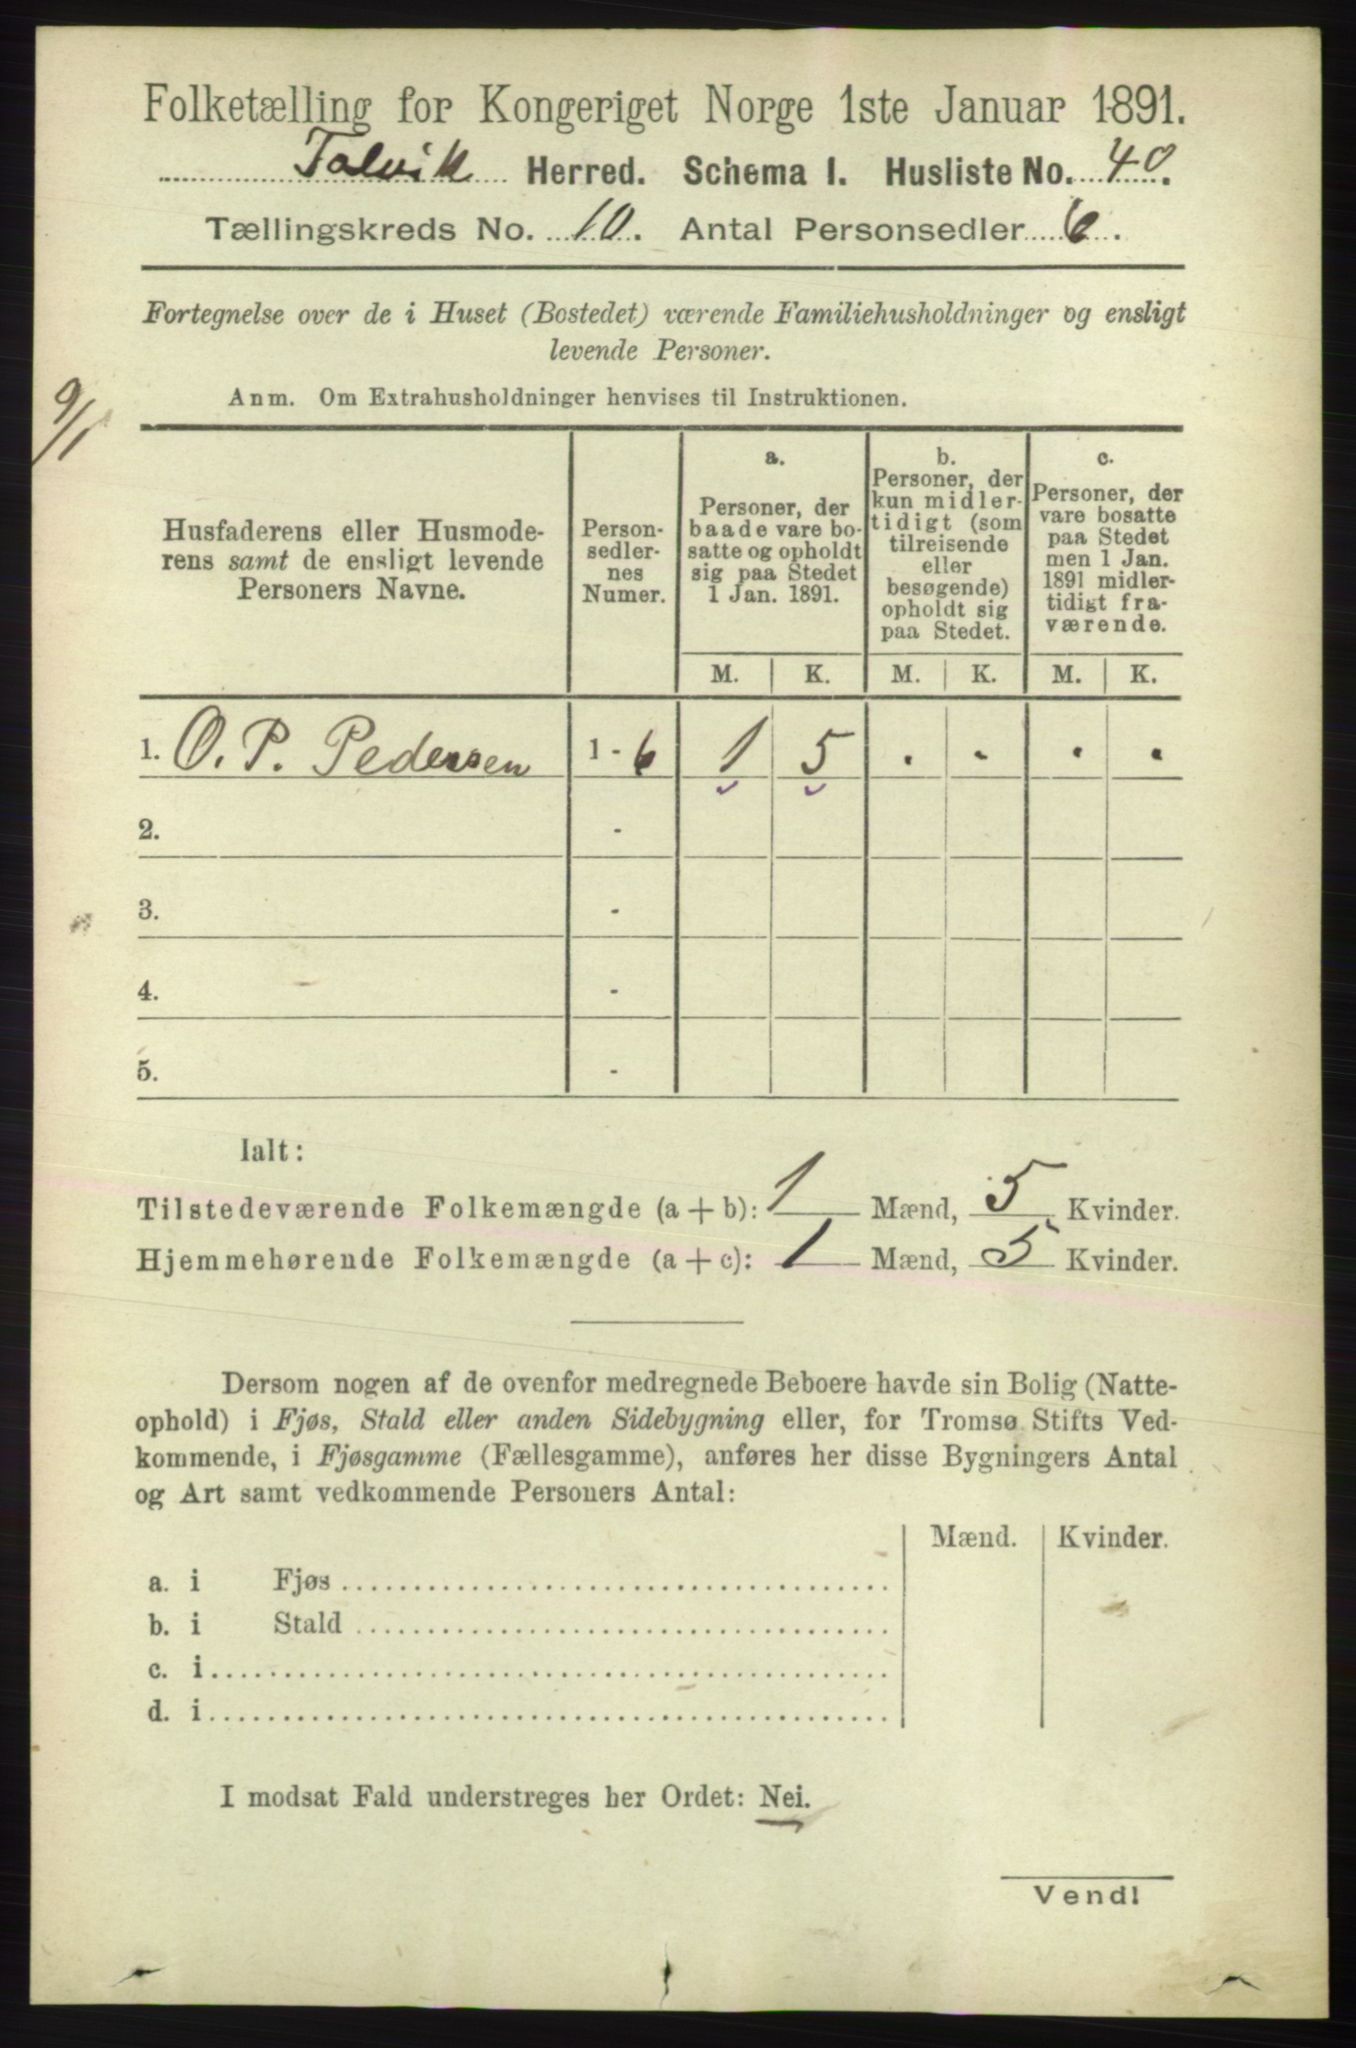 Folketælling for Kongeriget Norge 1ste Januar 1891.
Talvik Herred. Schema I. Husliste No. 40.
Tællingskreds No. 10. Antal Personsedler 6.
Fortegnelse over de i Huset (Bostedet) værende Familiehusholdninger og ensligt
levende Personer.
9/1
Anm. Om Extrahusholdninger henvises til Instruktionen.
Husfaderens eller Husmode-
rens samt de ensligt levende
Personers Navne.
Person-
sedler-
nes
Numer.
a.
Personer, der
baade vare bo-
satte og opholdt
sig paa Stedet
1 Jan. 1891.
b.
Personer, der
kun midler-
tidigt (som
tilreisende
eller
besøgende)
opholdt sig
paa Stedet.
c.
Personer, der
vare bosatte
paa Stedet
men 1 Jan.
1891 midler-
tidigt fra-
værende.
M. K. M. K. M. K.
1. O. P. Pedersen 1 - 6 1 5 . . . .
2. -
3. -
4. -
5. -
Ialt:
Tilstedeværende Folkemængde (a + b): 1 Mænd, 5 Kvinder.
Hjemmehørende Folkemængde (a + c): 1 Mænd, 5 Kvinder.
Dersom nogen af de ovenfor medregnede Beboere havde sin Bolig (Natte-
ophold) i Fjøs, Stald eller anden Sidebygning eller, for Tromsø Stifts Ved-
kommende, i Fjøsgamme (Fællesgamme), anføres her disse Bygningers Antal
og Art samt vedkommende Personers Antal:
Mænd. Kvinder.
a. i Fjøs
b. i Stald
c. i
d. i
I modsat Fald understreges her Ordet: Nei.
Vend!